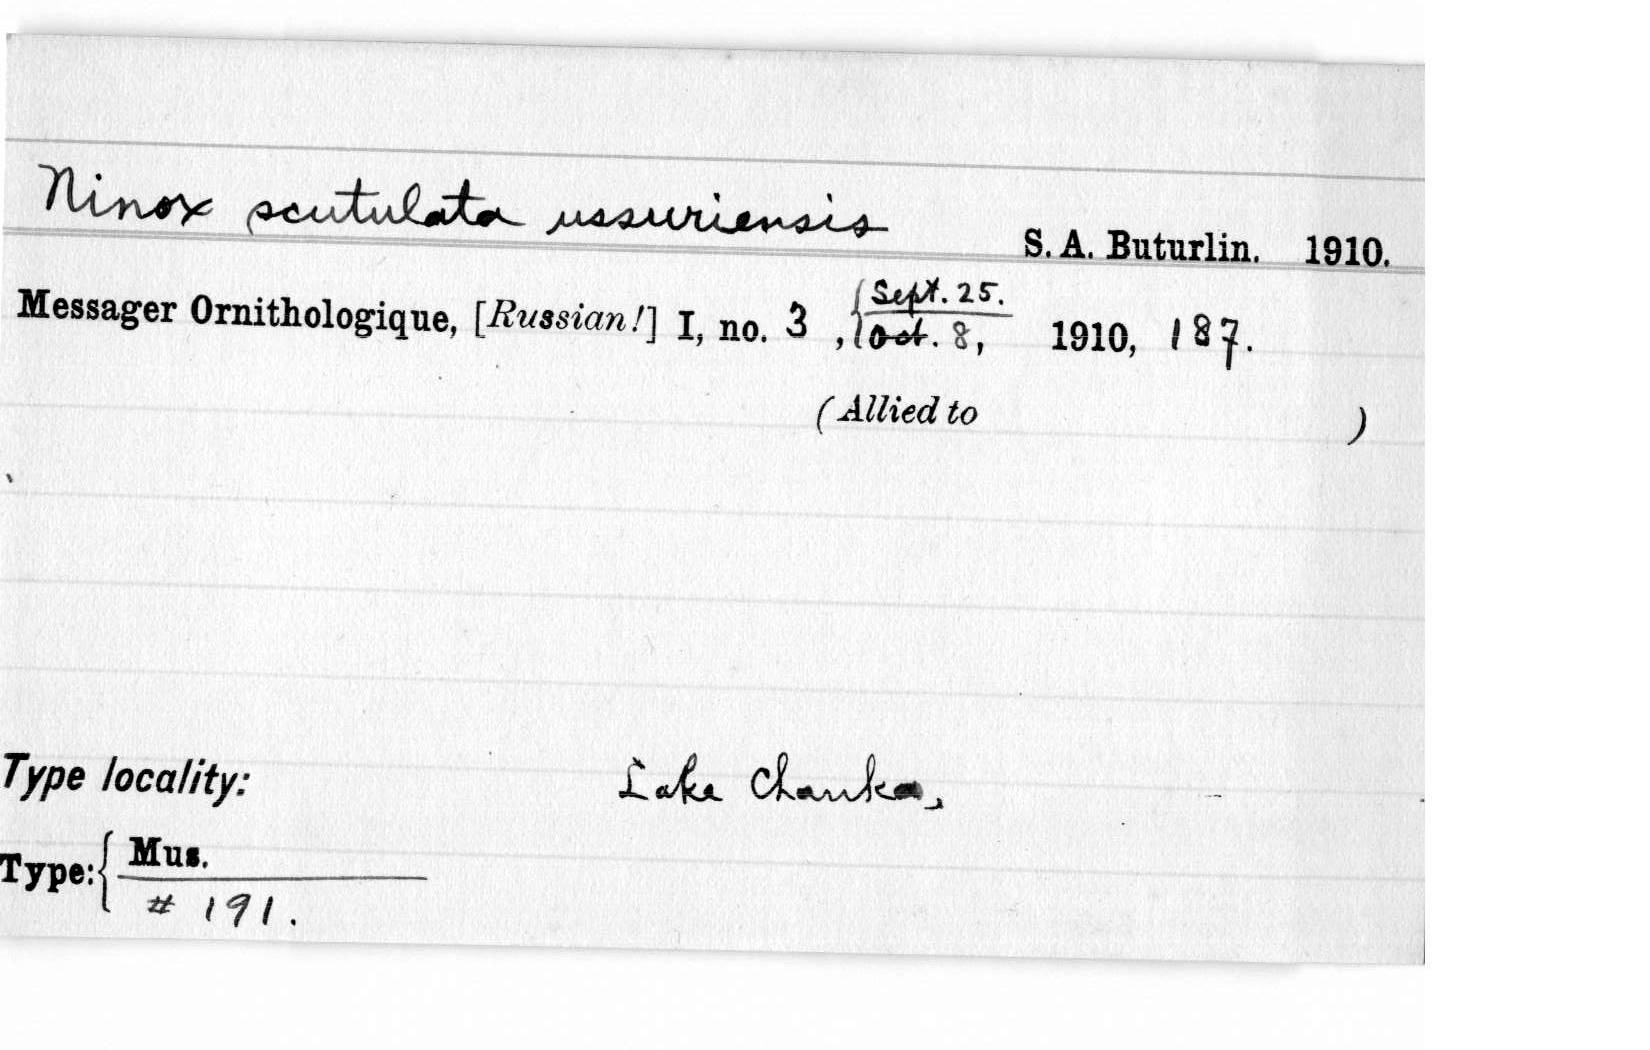 Ninox scutulata ussuriensis
S. A. Buturlin. 1910.
Messager Ornithologique, [Russian!] I, no. 3, {Sept. 25. / Oct. 8, 1910, 187.
(Allied to )
Type locality: Lake Chanka,
Type: { Mus.
# 191.